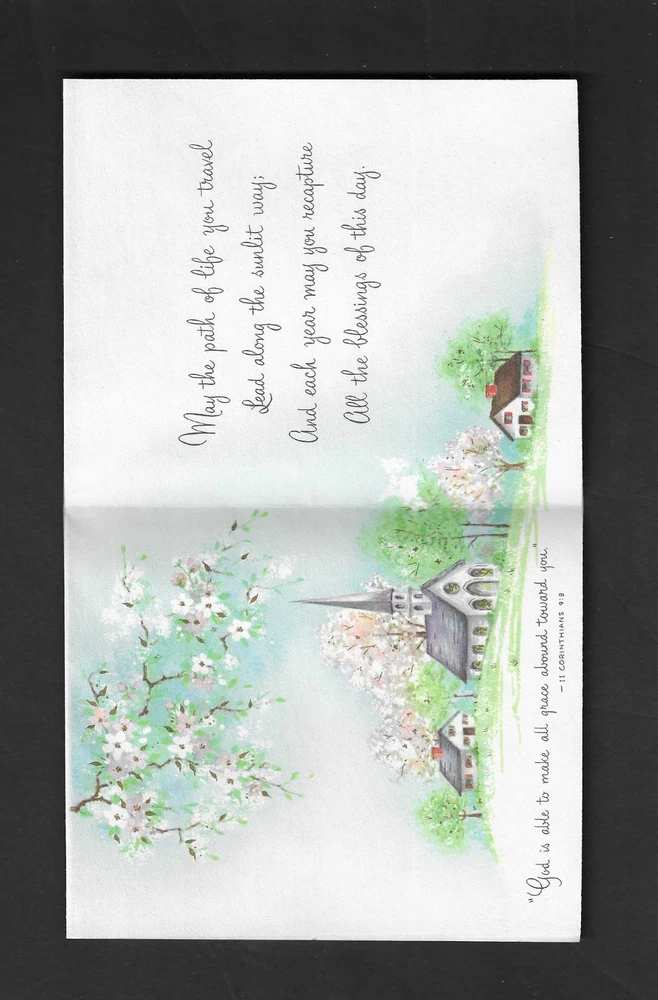 May the path of life you travel
Lead along the sunlit way;
And each year may you recapture
All the blessings of this day.
"God is able to make all grace abound toward you."
— II CORINTHIANS 9:8